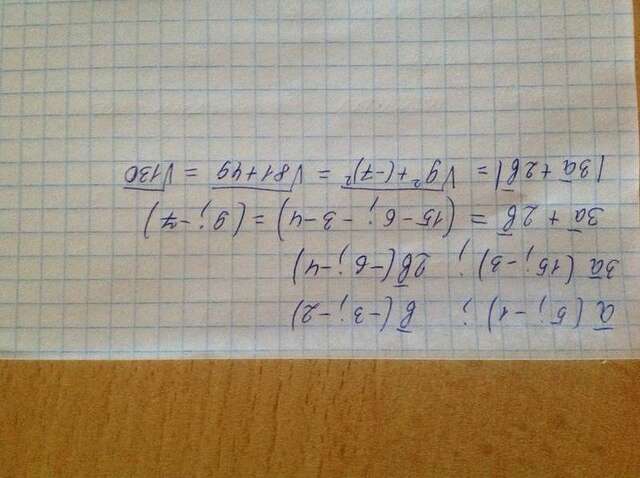 a̅ (5 ; -1) ; b̅ (-3 ; -2)
3a̅ (15 ; -3) ; 2b̅ (-6 ; -4)
3a̅ + 2b̅ = (15-6 ; -3-4) = (9 ; -7)
|3a̅ + 2b̅| = √(9²+(-7)²) = √(81+49) = √130